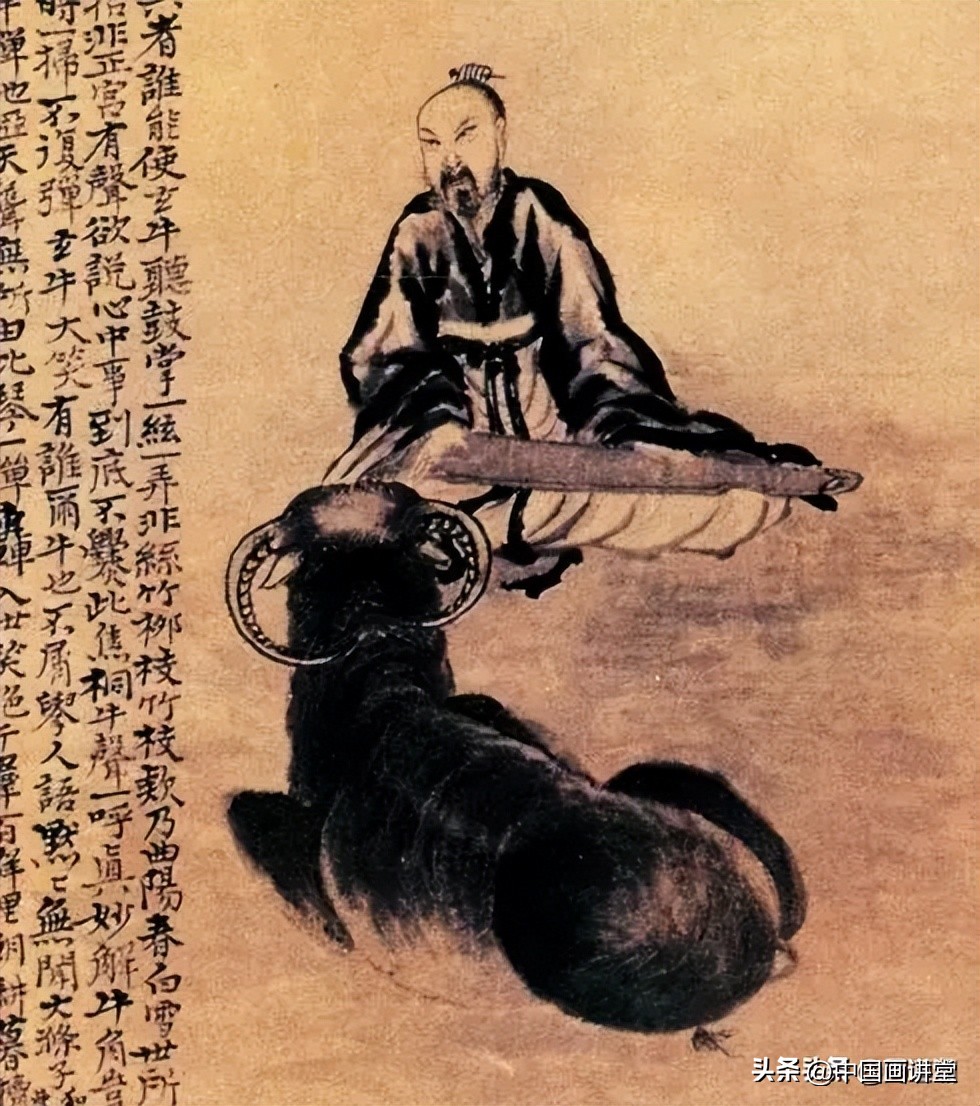 者誰能使玄牛聽鼓掌一絃一弄非絲竹柳枝竹枝欸乃曲陽春白雪世所
非正宮有聲欲説心中事到底不爨此焦桐牛聲一呼真妙解牛角豈
時一掃不復彈玄牛大笑有誰爾牛也不屑學人語默〻無聞大滌子
彈地啞天聾無所由此琴一彈入世笑絕千百朝耕暮犢
头条 @中国画讲堂